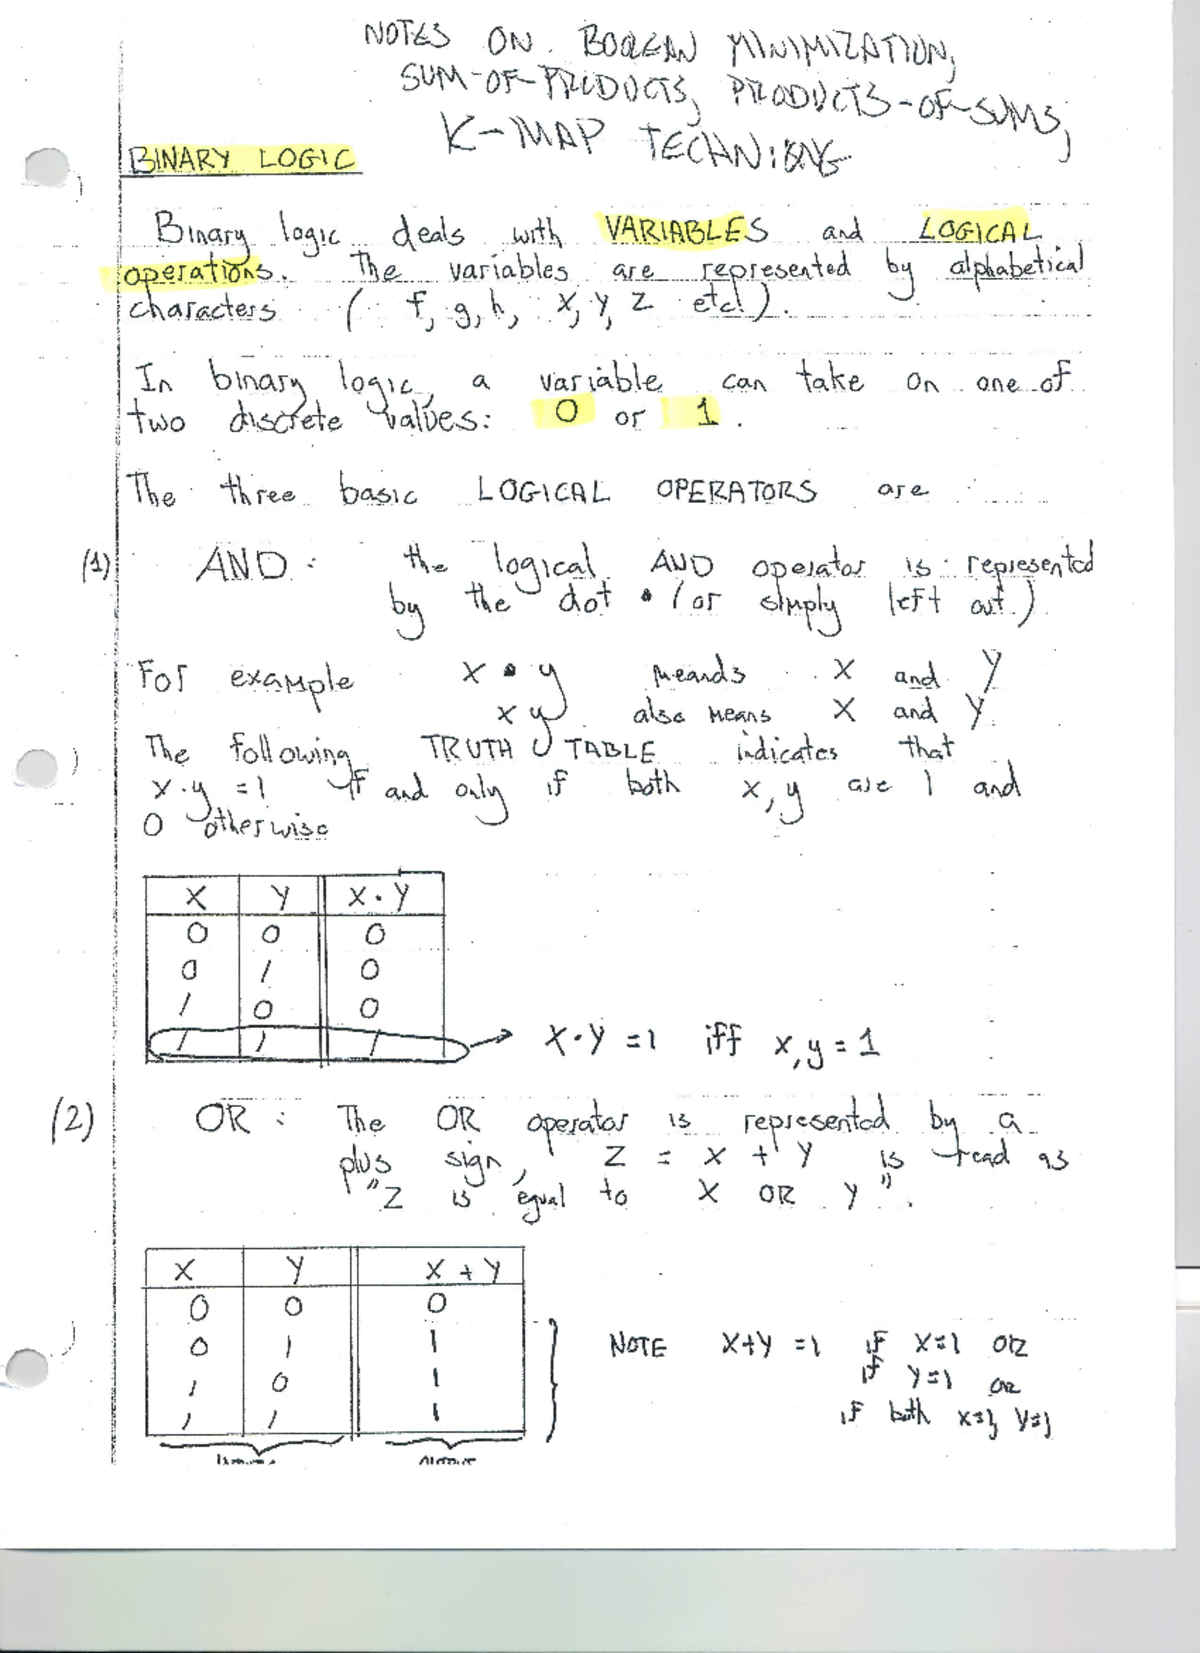 NOTES ON BOOLEAN MINIMIZATION,
SUM-OF-PRODUCTS, PRODUCTS-OF-SUMS,
K-MAP
BINARY LOGIC
Binary logic deals with VARIABLES and LOGICAL
operations. The variables are represented by alphabetical
characters ( f, g, h, x, y, z etc!).
In binary logic, a variable can take on one of
two discrete values: 0 or 1.
The three basic LOGICAL OPERATORS are
(1) AND: the logical AND operator is represented
by the dot • (or simply left out)
For example x • y meands x and y
xy also means x and y.
The following TRUTH TABLE indicates that
x·y = 1 if and only if both x, y are 1 and
0 otherwise
X Y X·Y
0 0 0
0 1 0
1 0 0
1 1 1 → X·Y = 1 iff x, y = 1
(2) OR: The OR operator is represented by a
plus sign, Z = X + Y is read as
"Z is equal to X OR Y".
X Y X + Y
0 0 0
0 1 1 NOTE X+Y = 1 if X=1 OR
1 0 1 if Y=1 OR
1 1 1 if both X=1, Y=1